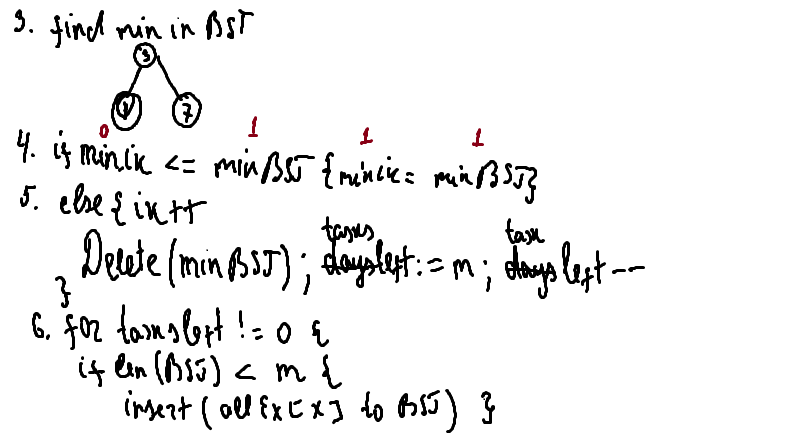 3. find min in BST
3
1 7
0 1 1 1
4. if minix <= minBST {minix = minBST}
5. else { ix++
tasks task
Delete(minBST); daysleft := m; daysleft --
}
6. for tasksleft != 0 {
if len(BST) < m {
insert( all to BST) }